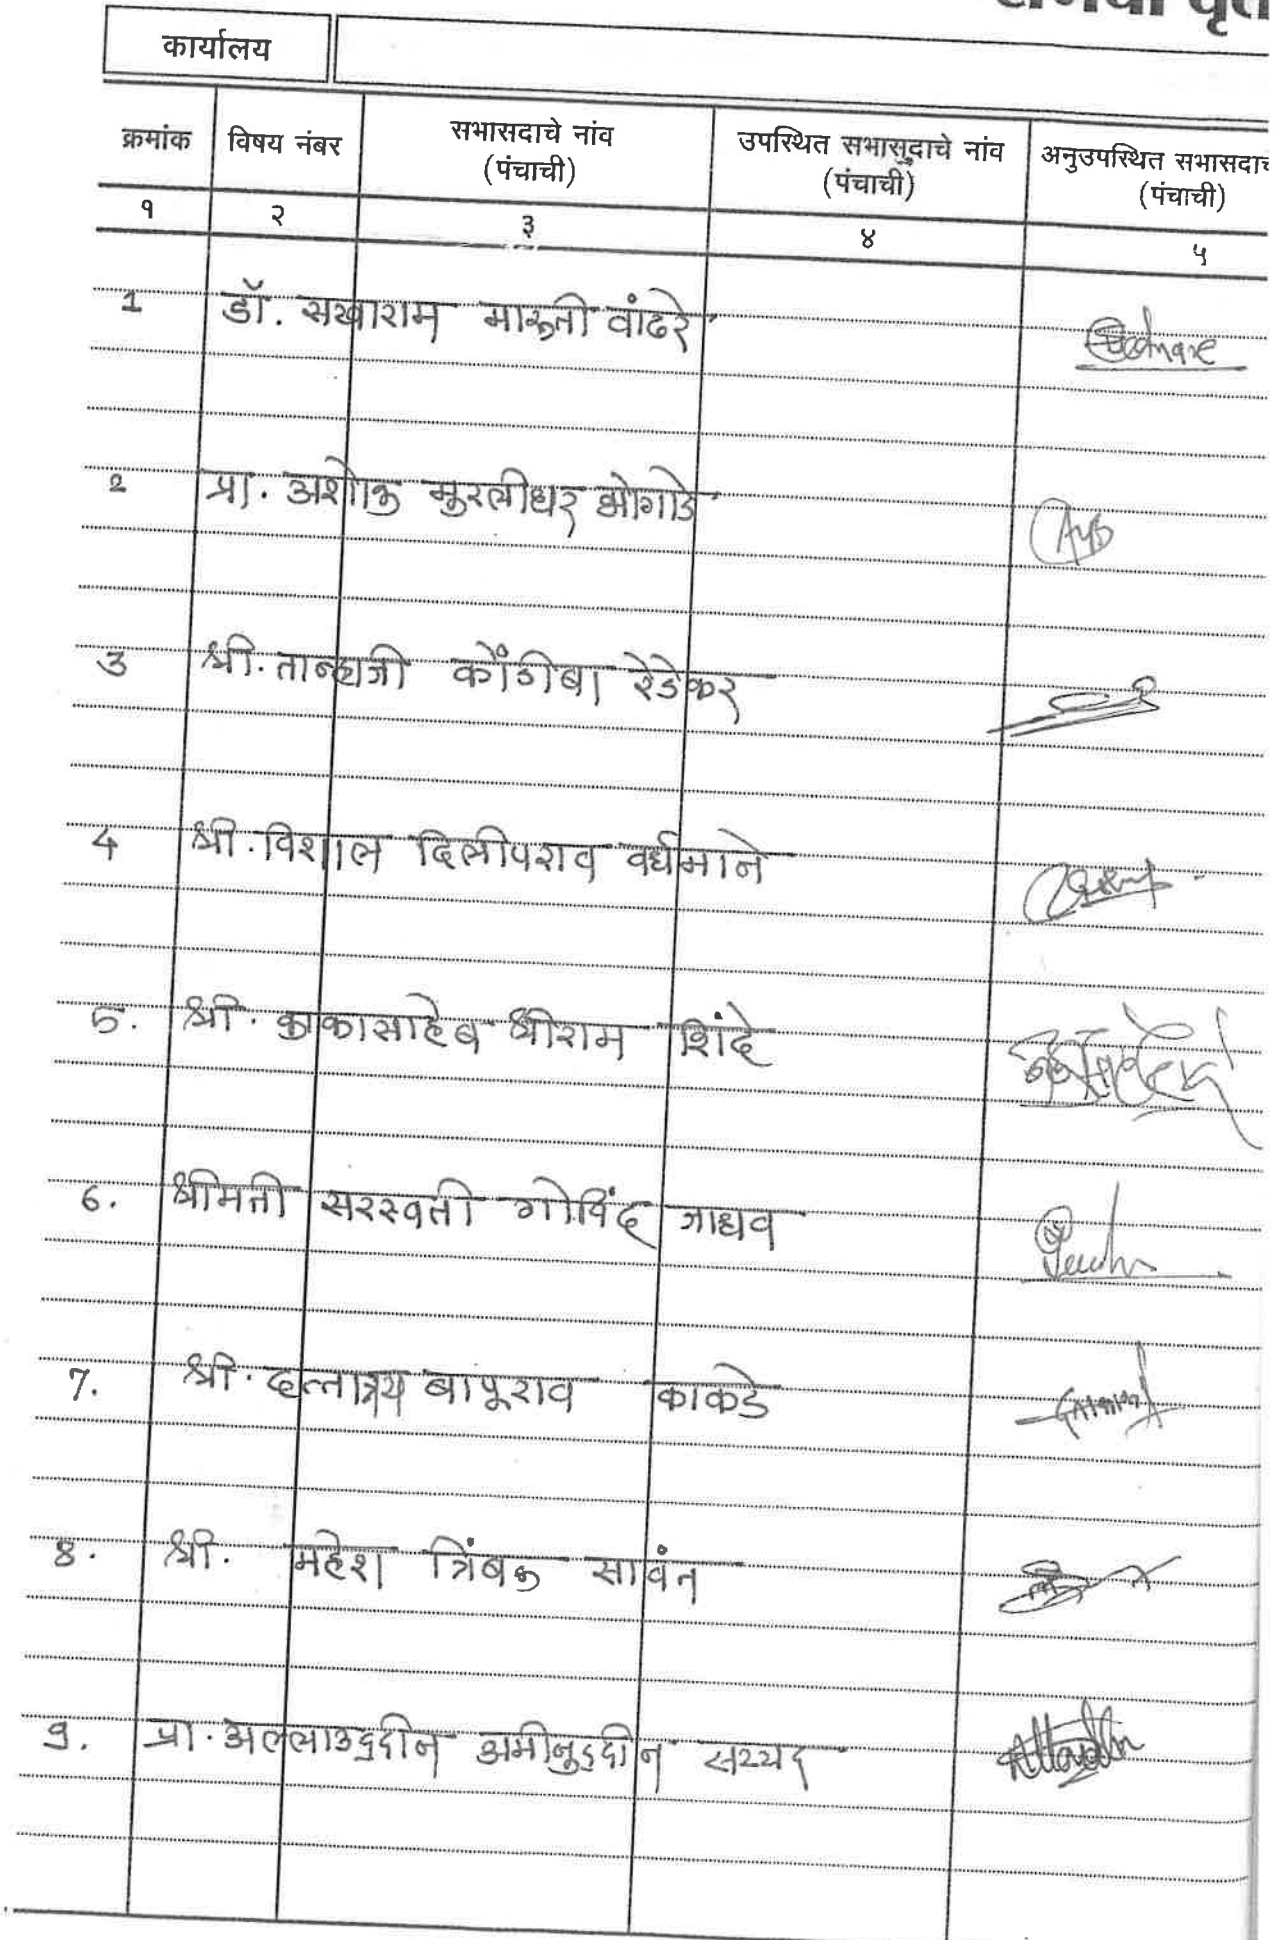 कार्यालय
क्रमांक विषय नंबर सभासदाचे नांव (पंचाची) उपस्थित सभासदाचे नांव (पंचाची) अनुउपस्थित सभासदाचे (पंचाची)
१ २ ३ ४ ५
1 डॉ. सखाराम मारूती वांढरे
2 प्रा. अशोक मुरलीधर भोगाडे
3 श्री. तान्हाजी कोंडीबा रेडेकर
4 श्री. विशाल दिलीपराव वर्धमाने
5. श्री. काकासाहेब श्रीराम शिंदे
6. श्रीमती सरस्वती गोविंद जाधव
7. श्री. दत्तात्रय बापूराव काकडे
8. श्री. महेश त्रिंबक सावंत
9. प्रा. अल्लाउद्दीन अमीनुद्दीन सय्यद